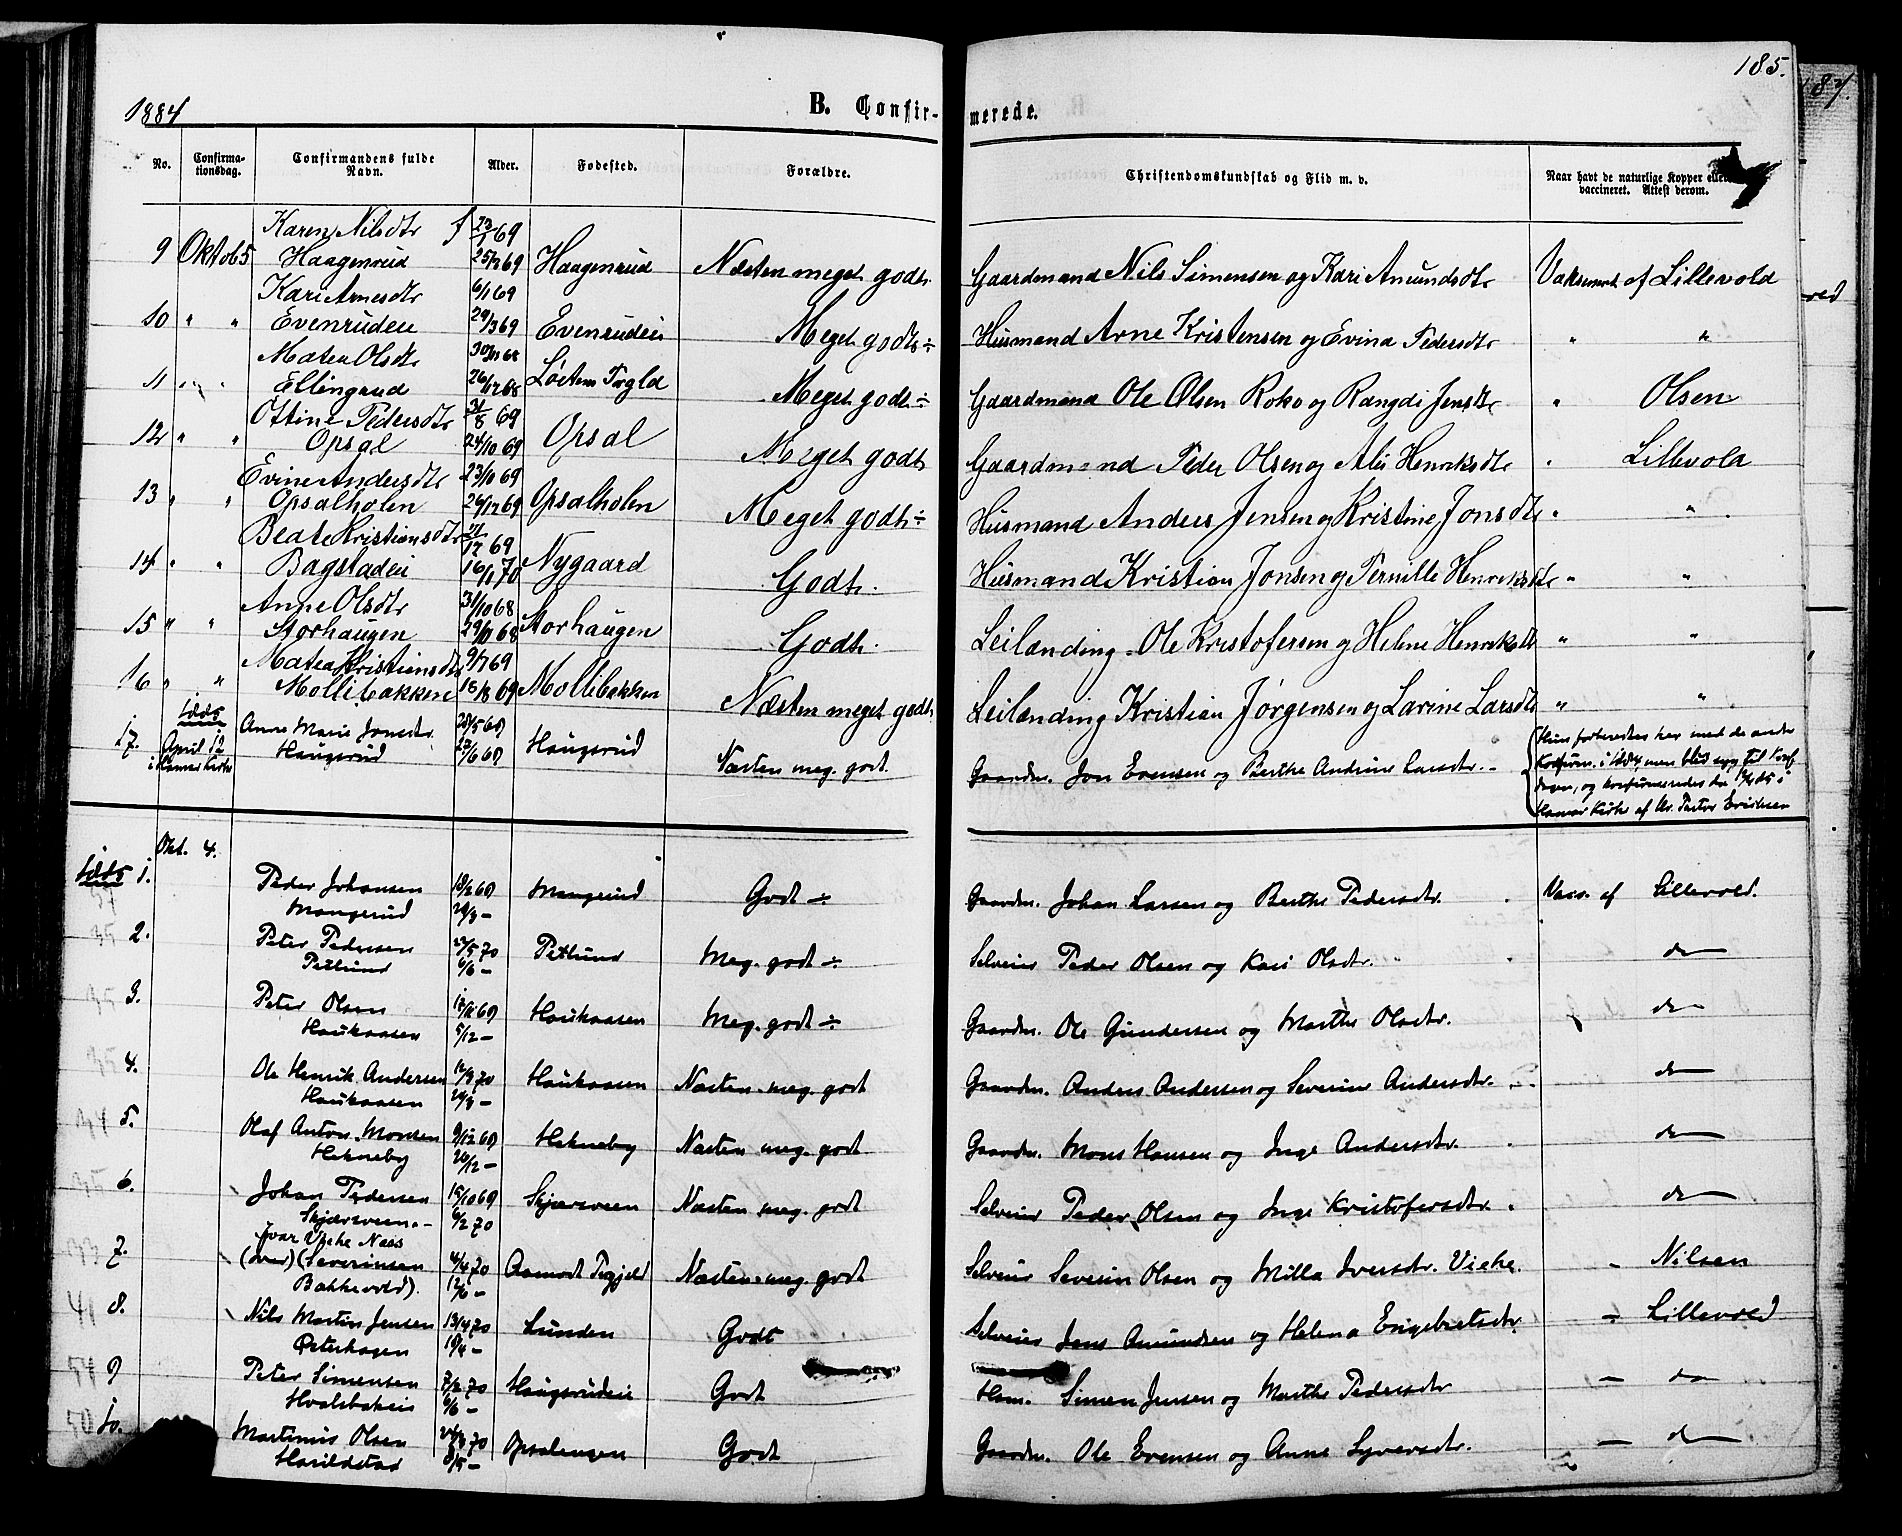 185.
187.
1884
B. Confirmerede.
No. Confirmationsdag. Confirmandens fulde Navn. Alder. Fødested. Forældre. Christendomskundskab og Flid m. v. Naar havt de naturlige Kopper eller vaccineret. Attest derom.
Karen Nilsdtr 69
9 Oktob 5 Haagenrud 69 Haagenrud Næsten meget godt. Gaardmand Nils Simensen og Kari Amundsdtr Vaksineret af Lillevold
Kari Arnesdtr 6/1 69
10 " " Evenrudeie 29/3 69 Evenrudeie Meget godt ÷ Husmand Arne Kristensen og Evina Pedersdtr " "
Matea Olsdtr 30/11 68
11 " " Ellingrud 26/12 68 Løiten Prgld Meget godt ÷ Gaardmand Ole Olsen Roko og Rangdi Jensdtr " Olsen
Ottine Pedersdtr 31/8 69
12 " " Opsal 24/10 69 Opsal Meget godt Gaardmand Peder Olsen og Alis Henriksdtr " Lillevold
Evine Andersdtr 23/10 69
13 " " Opsalholen 26/12 69 Opsalholen Meget godt ÷ Husmand Anders Jensen og Kristine Jonsdtr " "
Beate Kristiansdtr 21/12 69
14 " " Bagstadeie 16/1 70 Nygaard Godt. Husmand Kristian Jonsen og Pernille Henriksdtr " "
Anne Olsdtr 31/10 68
15 " " Storhaugen 29/11 68 Storhaugen Godt. Leilænding Ole Kristofersen og Helene Henriksdtr " "
Matea Kristiansdtr 9/7 69
16 " " Mollibakken 15/8 69 Mollibakken Næsten meget godt Leilænding Kristian Jørgensen og Larine Larsdtr " "
1885
17. April 12 i Hamar Kirke Anne Marie Jonsdtr. 28/5 69
Haugsrud 27/6 69 Haugsrud Næsten meg. godt. Gaardm. Jon Evensen og Berthe Andrine Larsdtr. -
Hun forberedtes her med de andre
Konfirm. i 1884, men blev syg til Konf.
dagen, og konfirmeredes den 12/4 85 i
Hamar Kirke af Hr. Pastor Erichsen
Okt. 4.
1885 1. Peder Johansen 18/2 69 Mangerud Godt ÷ Gaardm. Johan Larsen og Berthe Pedersdtr. Vacc. af Lillevold.
Mangerud 29/3 -
35 2. Peter Pedersen 22/5 70 Petlund Meg. godt ÷ Selveier Peder Olsen og Kari Olsdtr. do
Petlund 6/6 -
35 3. Peter Olsen 69 Haukaasen Meg. godt ÷ Gaardm. Ole Gundersen og Marthe Olsdtr. do
Haukaasen 5/12 -
35 4. Ole Henrik Andersen 12/3 70 Haukaasen Næsten meg. godt Gaardm. Anders Andersen og Severine Andersdtr. do
Haukaasen -
34 5. Olaf Anton Monsen 9/12 69 Hekneby Næsten meg. godt Gaardm. Mons Hansen og Inge Andersdtr. do
Hekneby 26/12 -
35 6. Johan Pedersen 15/10 69 Skjærsveen Næsten meg. godt Selveier Peder Olsen og Inge Kristofersdtr. do
Skjærsveen. - 6/2 70
Ivar Viche Næss
33 7. (Severinsen 4/4 70 Aamodt Prgjeld Næsten meg. godt Selveier Severin Olsen og Milla Iversdtr. Viche. - Nilsen
Bakkevold). 12/6 -
41 8. Nils Martin Jensen 13/4 70 Lunden Godt Selveier Jens Amundsen og Helena Engebretsdtr - Lillevold
Østerhagen 18/4 -
54 9 Peter Simensen 7/2 70 Haugsrudeie Godt Hsm. Simen Jensen og Marthe Pedersdtr - do
Hvalsbakeie 6/6 -
50 10. Martinus Olsen 70 Opsalengen Godt Gaardm. Ole Evensen og Anne Syversdtr. - do
Harildstad 8/5 -